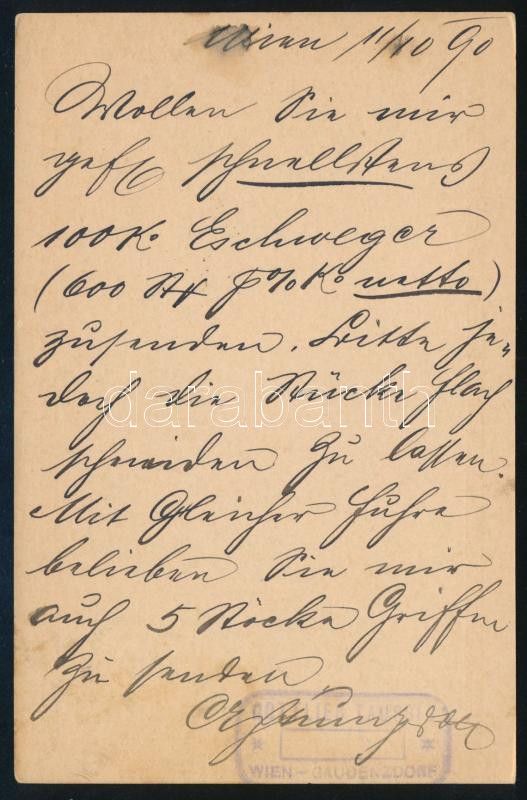 Wien 11/10 90
Wollen Sie mir
gefl schnellstens
100Ko Eschweger
(600 Stk %Ko netto)
zusenden. Bitte je„
doch die Stücke flach
schneiden zu lassen.
Mit gleicher Fuhre
belieben Sie mir
auch 5 Stöcke Griffen
zu senden
Achtungsvoll
WIEN-GAUDENZDORF
darabanth